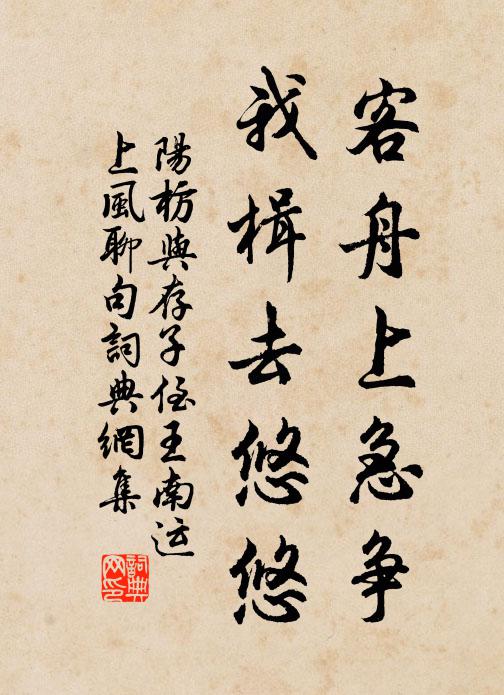 客舟上急争
我楫去悠悠
陽枋與存子侄王南运
上風聊句詞典網集
詞典
网印